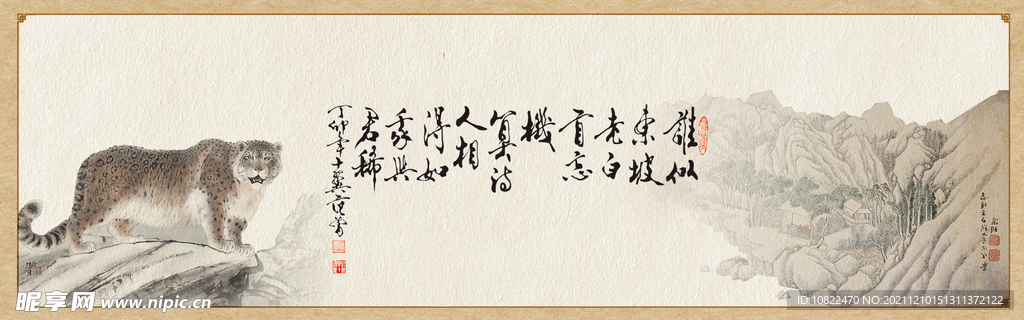 誰似
東坡
老白
首忘
機
算詩
人相
得如
我與
君稀
丁卯年十翼范曾
昵享网 www.nipic.cn
ID:10822470 NO:20211210151311372122